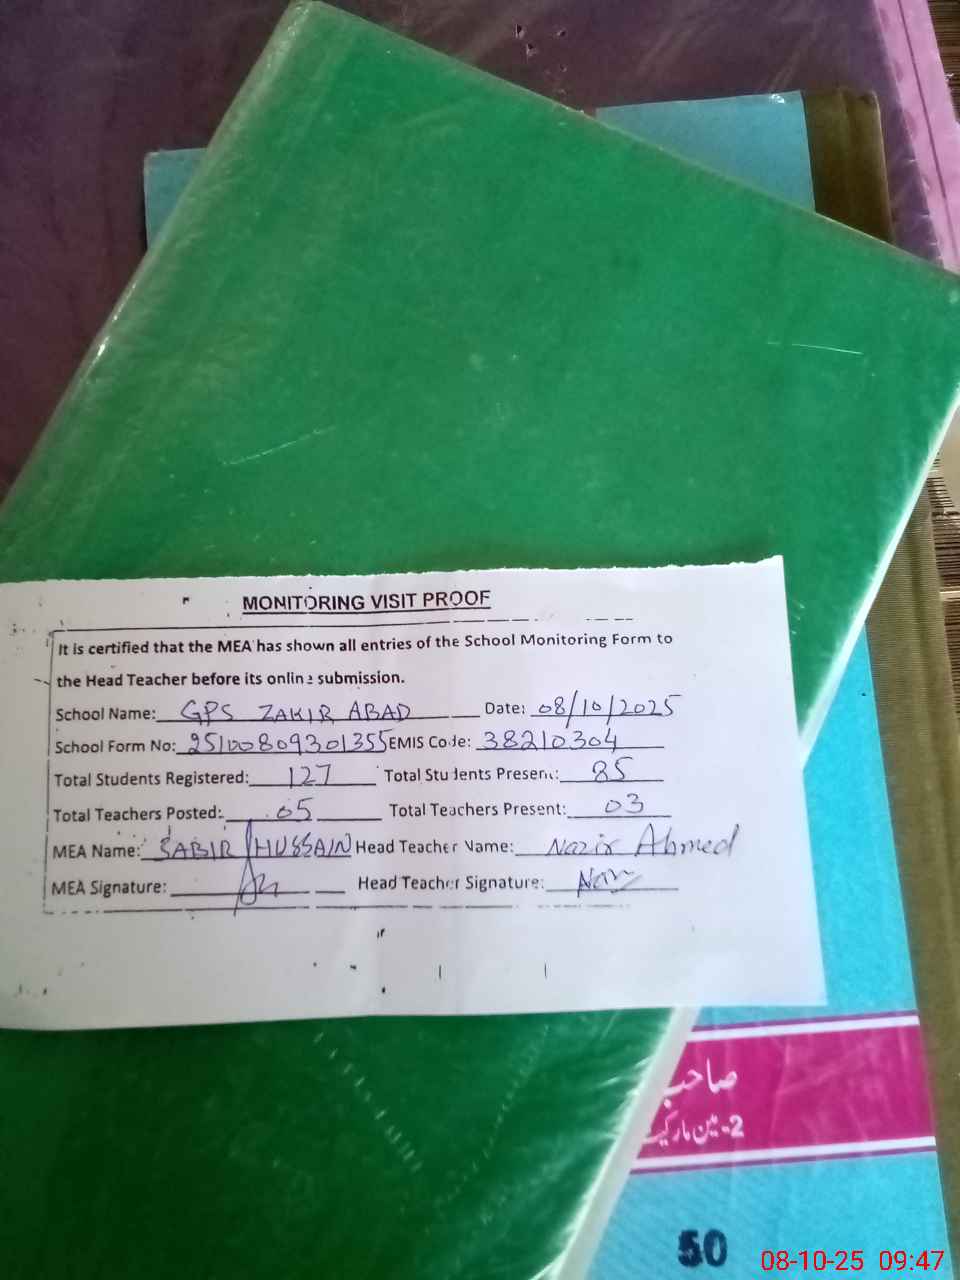 MONITORING VISIT PROOF
It is certified that the MEA has shown all entries of the School Monitoring Form to
the Head Teacher before its online submission.
School Name: GPS ZAKIR ABAD Date: 08/10/2025
School Form No: 25100809301355 EMIS Code: 38210304
Total Students Registered: 127 Total Students Present: 85
Total Teachers Posted: 05 Total Teachers Present: 03
MEA Name: SABIR HUSSAIN Head Teacher Name: Nazir Ahmed
MEA Signature: Head Teacher Signature:
صاحب
2-مین مارکیٹ
50
08-10-25 09:47